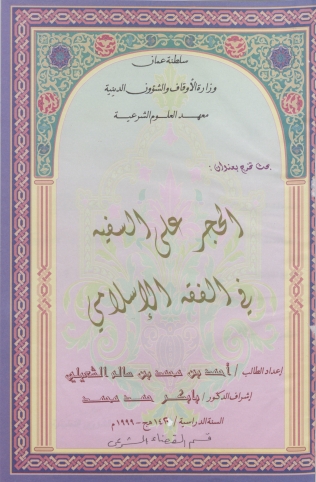 سلطنة عمان
وزارة الأوقاف والشؤون الدينية
معهد العلوم الشرعية
بحث تخرج بعنوان :
الحجر على السفيه
في الفقه الإسلامي
إعداد الطالب / أحمد بن محمد بن سالم الشعيلي
إشراف الدكتور / بابكر حمد محمد
السنة الدراسية / ١٤٢٠هـ - ١٩٩٩م
قسم القضاء الشرعي